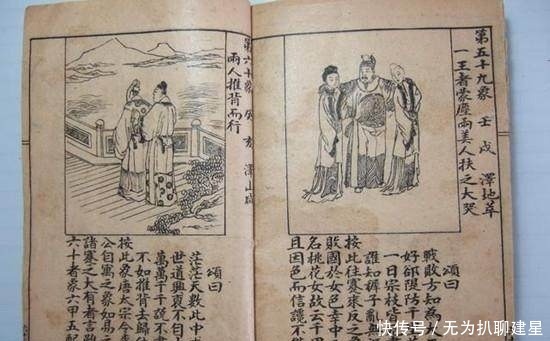 第五十九象 壬戌 澤地萃
一王者蒙塵兩美人扶之大哭
頌曰
戰敗方知為
好郤限防干
一日宗枝皆
誰知裤子亂無
按此往寨來反之
敗國於女色幸中
名桃花女故云千
且因色而信讒不
第六十象 癸亥 澤山咸
兩人推背而行
頌曰
茫茫天數此中
世道興衰不自
萬萬千千說不盡
不如推背去歸
按此象唐太宗令
公自寓之象如易
諸寒之大有者言
六十者象六甲五配
快传号/无为扒聊建星